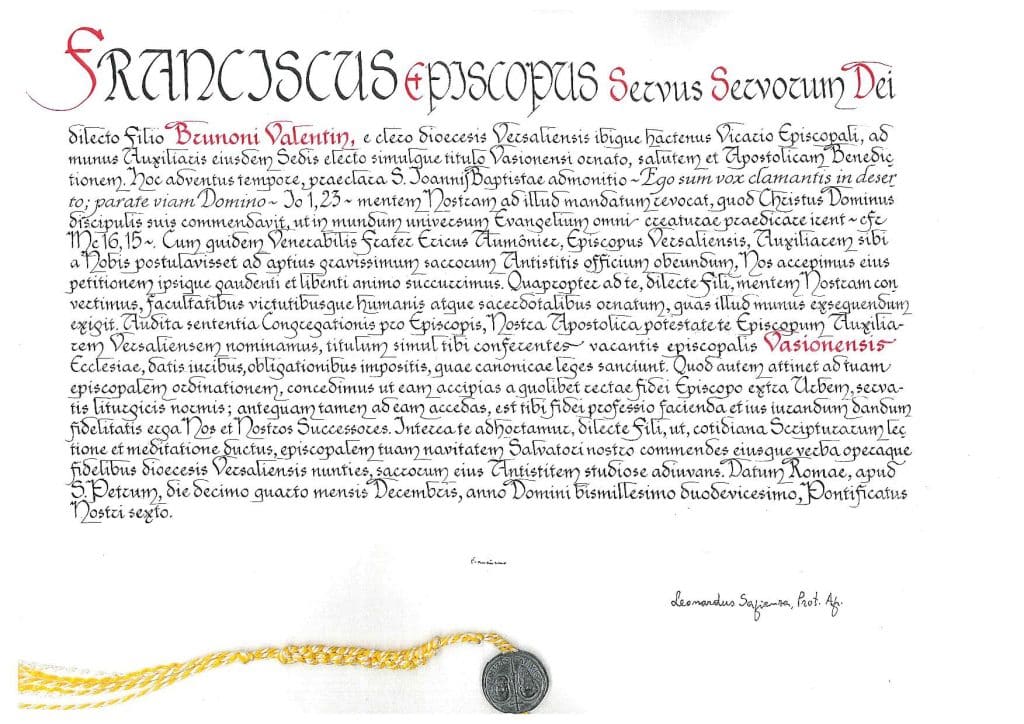 FRANCISCUS EPISCOPUS Servus Servorum Dei
dilecto Filio Brunoni Valentin, e clero dioecesis Versaliensis ibique hactenus Vicario Episcopali, ad
munus Auxiliaris eiusdem Sedis electo simulque titulo Vasionensi ornato, salutem et Apostolicam Benedic
tionem. Hoc adventus tempore, praeclara S. Ioannis Baptistae admonitio ~ Ego sum vox clamantis in deser
to; parate viam Domino ~ Io 1,23 ~ mentem Nostram ad illud mandatum revocat, quod Christus Dominus
discipulis suis commendavit, ut in mundum universum Evangelium omni creaturae praedicare irent ~ cfr
Mc 16,15 ~. Cum quidem Venerabilis Frater Ericus Aumônier, Episcopus Versaliensis, Auxiliarem sibi
a Nobis postulavisset ad aptius gravissimum sacrorum Antistitis officium obeundum, Nos accepimus eius
petitionem ipsique gaudenti et libenti animo succurrimus. Quapropter ad te, dilecte Fili, mentem Nostram con
vertimus, facultatibus virtutibusque humanis atque sacerdotalibus ornatum, quas illud munus exsequendum
exigit. Audita sententia Congregationis pro Episcopis, Nostra Apostolica potestate te Episcopum Auxilia-
rem Versaliensem nominamus, titulum simul tibi conferentes vacantis episcopalis Vasionensis
Ecclesiae, datis iuribus, obligationibus impositis, quae canonicae leges sanciunt. Quod autem attinet ad tuam
episcopalem ordinationem, concedimus ut eam accipias a quolibet rectae fidei Episcopo extra Urbem, serva-
tis liturgicis normis; antequam tamen ad eam accedas, est tibi fidei professio facienda et ius iurandum dandum
fidelitatis erga Nos et Nostros Successores. Interea te adhortamur, dilecte Fili, ut, cotidiana Scripturarum lec
tione et meditatione ductus, episcopalem tuam navitatem Salvatori nostro commendes eiusque verba operaque
fidelibus dioecesis Versaliensis nunties, sacrorum eius Antistitem studiose adiuvans. Datum Romae, apud
S. Petrum, die decimo quarto mensis Decembris, anno Domini bismillesimo duodevicesimo, Pontificatus
Nostri sexto.
Franciscus
Leonardus Sapienza, Prot. Ap.